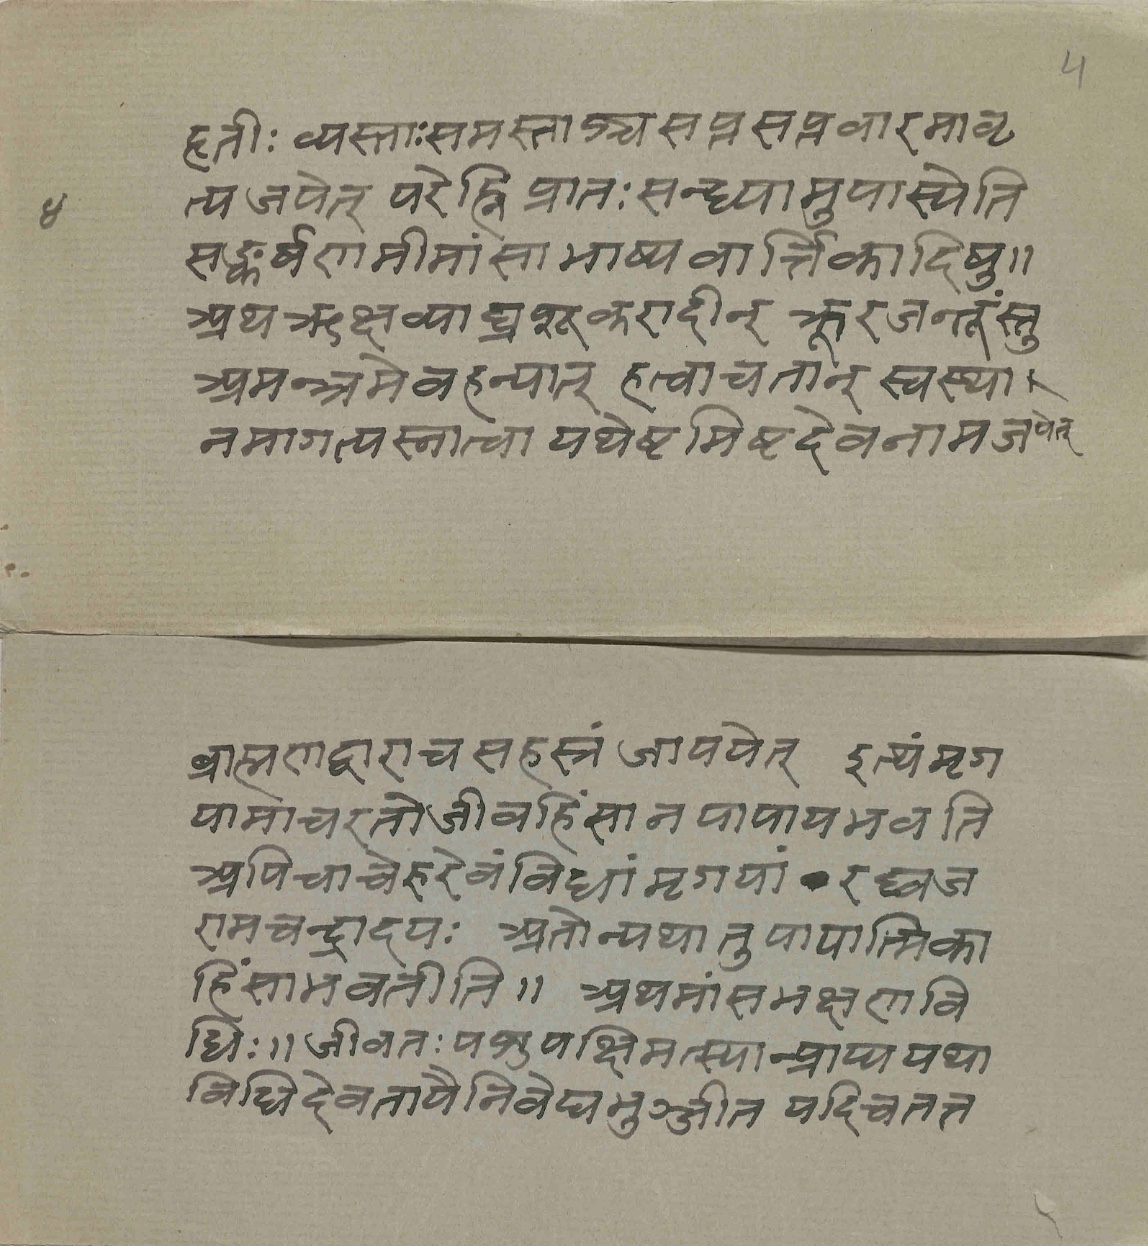 ५
हृतीः व्यस्ताःसमस्ताञ्च सप्त सप्त वारमावृ
४
त्य जपेत् परेह्नि प्रातःसन्ध्यामुपास्येति
सङ्कर्षणमीमांसाभाष्यवार्त्तिकादिषु॥
अथ ऋक्षव्याघ्रशूकरादीन् क्रूरजन्तूंस्तु
अमन्त्रमेवहन्यात् हत्वाचतान् स्वस्था
नमागत्यस्नात्वा यथेष्टमिष्टदेवनामजपेत्
ब्राह्मणद्वाराच सहस्त्रं जापयेत् इत्यंमृग
यामाचरतोजीवहिंसा न पापायभवति
अपिचाचेरुरेवंविधां मृगयां रघ्वज
रामचन्द्रादयः अतोन्यथा तु पापात्मिका
हिंसाभवतीति॥ अथमांसभक्षणवि
धिः॥ जीवतः पशुपक्षिमत्स्यान्प्राप्य यथा
विधिदेवतायैनिवेद्यभुञ्जीत यदिचतत्त